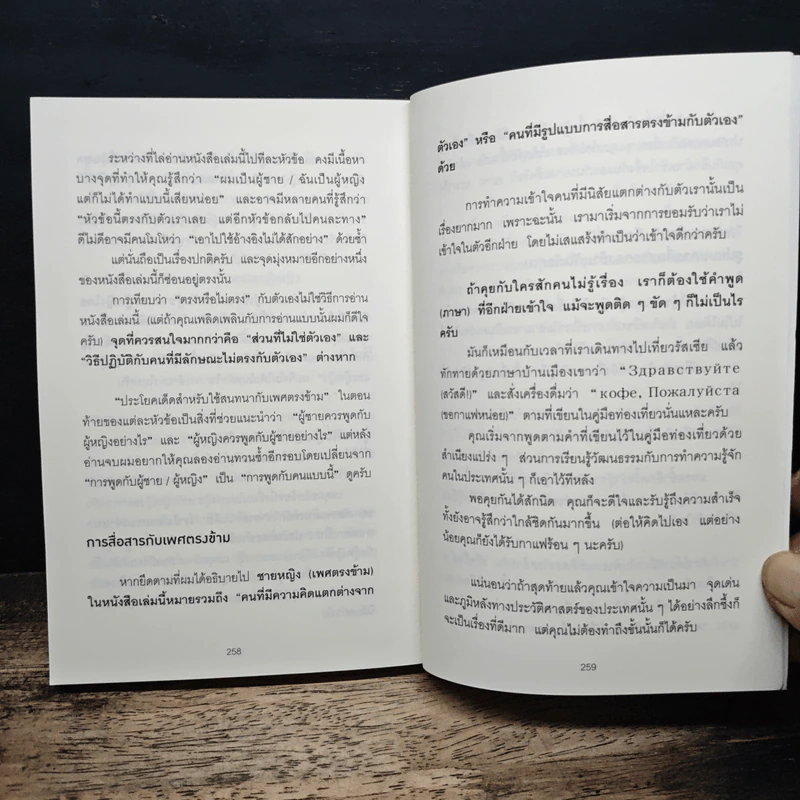 ระหว่างที่ไล่อ่านหนังสือเล่มนี้ไปทีละหัวข้อ คงมีเนื้อหา
บางจุดที่ทำให้คุณรู้สึกว่า “ผมเป็นผู้ชาย / ฉันเป็นผู้หญิง
แต่ก็ไม่ได้ทำแบบนี้เสียหน่อย” และอาจมีหลายคนที่รู้สึกว่า
“หัวข้อนี้ตรงกับตัวเราเลย แต่อีกหัวข้อกลับไปคนละทาง”
ดีไม่ดีอาจมีคนโมโหว่า “เอาไปใช้อ้างอิงไม่ได้สักอย่าง” ด้วยซ้ำ
แต่นั่นถือเป็นเรื่องปกติครับ และจุดมุ่งหมายอีกอย่างหนึ่ง
ของหนังสือเล่มนี้ก็ซ่อนอยู่ตรงนั้น
การเทียบว่า “ตรงหรือไม่ตรง” กับตัวเองไม่ใช่วิธีการอ่าน
หนังสือเล่มนี้ (แต่ถ้าคุณเพลิดเพลินกับการอ่านแบบนั้นผมก็ดีใจ
ครับ) จุดที่ควรสนใจมากกว่าคือ “ส่วนที่ไม่ใช่ตัวเอง” และ
“วิธีปฏิบัติกับคนที่มีลักษณะไม่ตรงกับตัวเอง” ต่างหาก
“ประโยคเด็ดสำหรับใช้สนทนากับเพศตรงข้าม” ในตอน
ท้ายของแต่ละหัวข้อเป็นสิ่งที่ช่วยแนะนำว่า “ผู้ชายควรพูดกับ
ผู้หญิงอย่างไร” และ “ผู้หญิงควรพูดกับผู้ชายอย่างไร” แต่หลัง
อ่านจบผมอยากให้คุณลองอ่านทวนซ้ำอีกรอบโดยเปลี่ยนจาก
“การพูดกับผู้ชาย / ผู้หญิง” เป็น “การพูดกับคนแบบนี้” ดูครับ
การสื่อสารกับเพศตรงข้าม
หากยึดตามที่ผมได้อธิบายไป ชายหญิง (เพศตรงข้าม)
ในหนังสือเล่มนี้หมายรวมถึง “คนที่มีความคิดแตกต่างจาก
258
ตัวเอง” หรือ “คนที่มีรูปแบบการสื่อสารตรงข้ามกับตัวเอง”
ด้วย
การทำความเข้าใจคนที่มีนิสัยแตกต่างกับตัวเรานั้นเป็น
เรื่องยากมาก เพราะฉะนั้น เรามาเริ่มจากการยอมรับว่าเราไม่
เข้าใจในตัวอีกฝ่าย โดยไม่เสแสร้งทำเป็นว่าเข้าใจดีกว่าครับ
ถ้าคุยกับใครสักคนไม่รู้เรื่อง เราก็ต้องใช้คำพูด
(ภาษา) ที่อีกฝ่ายเข้าใจ แม้จะพูดติด ๆ ขัด ๆ ก็ไม่เป็นไร
ครับ
มันก็เหมือนกับเวลาที่เราเดินทางไปเที่ยวรัสเซีย แล้ว
ทักทายด้วยภาษาบ้านเมืองเขาว่า “Здравствуйте
(สวัสดี!)” และสั่งเครื่องดื่มว่า “кофе, Пожалуйста
(ขอกาแฟหน่อย)” ตามที่เขียนในคู่มือท่องเที่ยวนั่นแหละครับ
คุณเริ่มจากพูดตามคำที่เขียนไว้ในคู่มือท่องเที่ยวด้วย
สำเนียงแปร่ง ๆ ส่วนการเรียนรู้วัฒนธรรมกับการทำความรู้จัก
คนในประเทศนั้น ๆ ก็เอาไว้ทีหลัง
พอคุยกันได้สักนิด คุณก็จะดีใจและรับรู้ถึงความสำเร็จ
ทั้งยังอาจรู้สึกว่าใกล้ชิดกันมากขึ้น (ต่อให้คิดไปเอง แต่อย่าง
น้อยคุณก็ยังได้รับกาแฟร้อน ๆ นะครับ)
แน่นอนว่าถ้าสุดท้ายแล้วคุณเข้าใจความเป็นมา จุดเด่น
และภูมิหลังทางประวัติศาสตร์ของประเทศนั้น ๆ ได้อย่างลึกซึ้งก็
จะเป็นเรื่องที่ดีมาก แต่คุณไม่ต้องทำถึงขั้นนั้นก็ได้ครับ
259